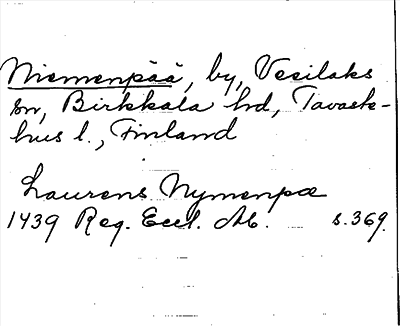 Niemenpää, by, Vesilaks
sn, Birkkala hd, Tavaste-
hus l., Finland
Laurens Nymenpæ
1439 Reg. Eccl. Ab. s. 369.